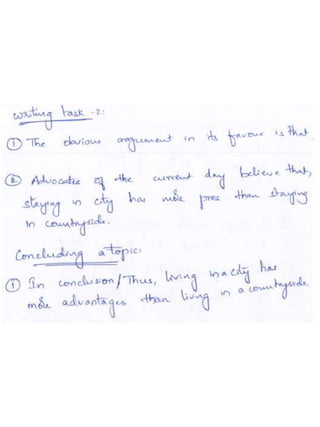 Writing task -2:
① The obvious argument in its favour is that.
② Advocates of the current day believe that,
staying in city has more pros than staying
in countryside.
Concluding a topic:
① In conclusion/Thus, living in a city has
more advantages than living in a countryside.